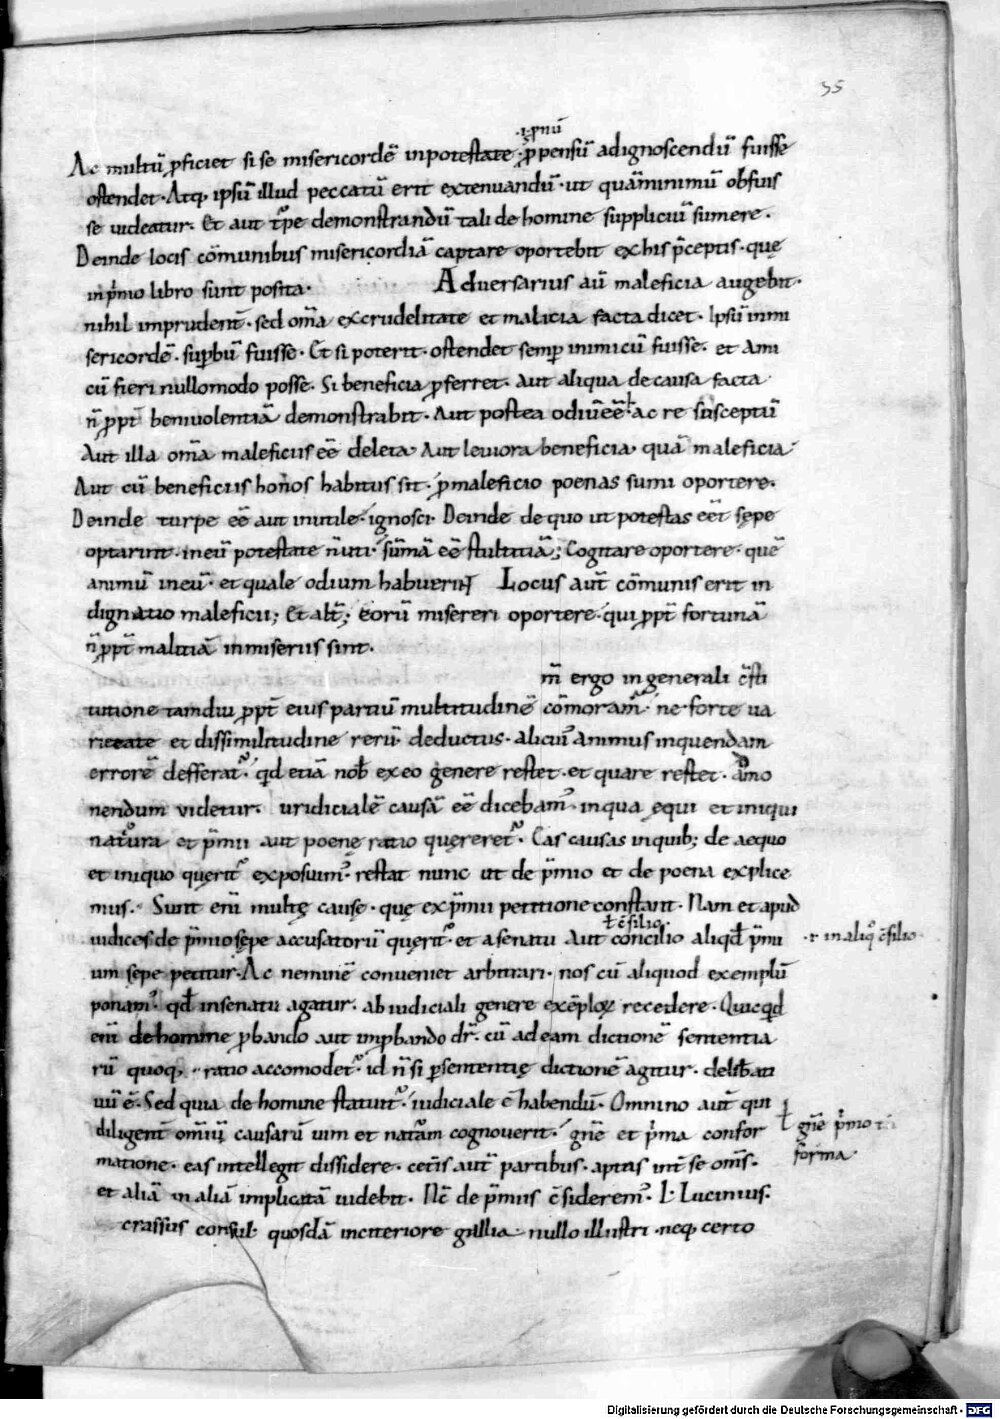 35
·i·pnū
Ac multū ꝓficiet si se misericordē inpotestate ꝓpensiū adignoscendū fuisse
ostendet. Atq; ipsū illud peccatū erit extenuandū. ut quāminimū obfuis
se uideatur. Et aut t͛pe demonstrandū tali de homine suppliciū sumere.
Deinde locis cōmunibus misericordiā captare oportebit exhis p̄ceptis. quę
inp̍mo libro sunt posita. Aduersarius aū maleficia augebit.
nihil imprudent̄. sed om̄a excrudelitate et malicia facta dicet. Ipsū inmi
sericordē. supbū fuisse. Et si poterit. ostendet semp inimicū fuisse. et Ami
cū fieri nullomodo posse. Si beneficia ꝓferret. Aut aliqua decausa facta
n̄ ꝓpt̄ beniuolentiā demonstrabit. Aut postea odiū ēē ac re susceptū
Aut illa om̄a maleficiis ēē deleta. Aut leuiora beneficia. quā maleficia
Aut cū beneficiis honos habitus sit. ꝓ maleficio poenas sumi oportere.
Deinde turpe ēē aut inutile. ignosci. Deinde dequo ut potestas eēt sępe
optarint. ineū potestate n̄ uti. sūmā ēē stultitiā; Cogitare oportere. quē
animū ineū. et quale odium habuerint Locus aut̄ cōmunis erit in
dignatio maleficii; Et alt̄; Eorū misereri oportere. qui ꝓpt̄ fortunā
n̄ ꝓpt̄ malitiā inmiseriis sint.
m̄ ergo ingenerali c̄sti
tutione tamdiu ꝓpt̄ eius partiū multitudinē cōmoram̄. ne forte ua
rietate et dissimilitudine rerū deductus. alicui᷒ animus inquendam
errorē defferat᷒. qđ etiā nob̄ exeo genere restet. et quare restet. ām̄o
nendum videtur. uridicialē causā ēē dicebam᷒. inqua ęqui et iniqui
natura et p̄mii aut poenę ratio quęreret᷒. Eas causas inquib; de aequo
et iniquo querit᷒ exposuim᷒. restat nunc ut de p̄mio et de poena explice
mus. Sunt enī multę cause. quę exp̄mii petitione constant. Nam et apud
ƚ c̄silio.
iudices de p̄mio sępe accusatorū querit᷒. et asenatu Aut concilio aliqđ p̄mi
·r· inaliq̊ c̄silio
um sępe petitur. Ac neminē conueniet arbitrari. nos cū aliquod exemplū
ponam᷒. qđ insenatu agatur. ab iudiciali genere exēploꝝ recedere. Quicqđ
enī dehomine ꝓbando aut impbando dr̄. cū adeam dictionē sententia
rū quoq; ratio accomodet᷒. id n̄ si ꝑsententię dictionē agitur. delib̄ati
uū ē. Sed quia de homine statuit᷒. iudiciale ē habendū. Omnino aut̄ qui
diligent̄ omniū causarū uim et nat̄am cognouerit. gn̄e et p̍ma confor
ƚ gn̄e p̍mo
forma.
matione. eas intellegit dissidere. cet̄is aut̄ partibus. aptas int̄ se om̄s.
et aliā inaliā implicitā uidebit. Nc̄ de p̄miis c̄siderem᷒. L. Lucinius.
crassus consul. quosdā inciteriore gallia nullo illustri neq; certo
Digitalisierung gefördert durch die Deutsche Forschungsgemeinschaft - DFG